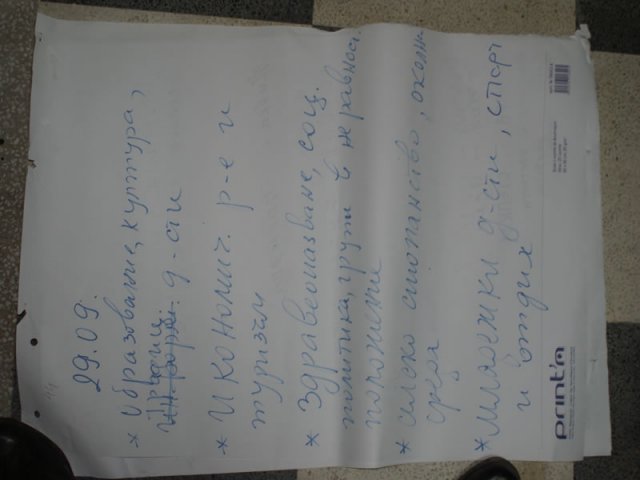 29.09.
* Образование, култура,
д-сти
* Икономич. р-е и
туризъм
* Здравеопазване, соц.
политика, групи в неравност.
положение
* селско стопанство, околна
среда
* младежки д-сти, спорт
и отдих
PRINT'M